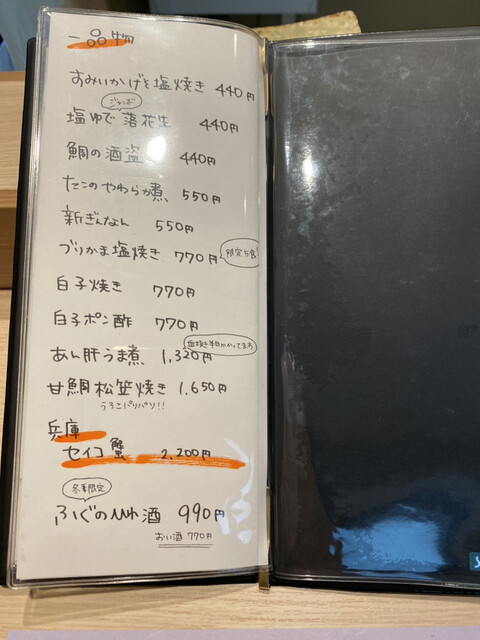 一品物
すみいかげそ塩焼き 440円
ジャンボ
塩ゆで落花生 440円
鯛の酒盗 440円
たこのやわらか煮 550円
新ぎんなん 550円
ブリかま塩焼き 770円 限定5食
白子焼き 770円
白子ポン酢 770円
あん肝うま煮 1,320円
甘鯛松笠焼き 1,650円
うろこパリパリ!!
兵庫
セイコ蟹 2,200円
冬季限定
ふぐのひれ酒 990円
おい酒 770円